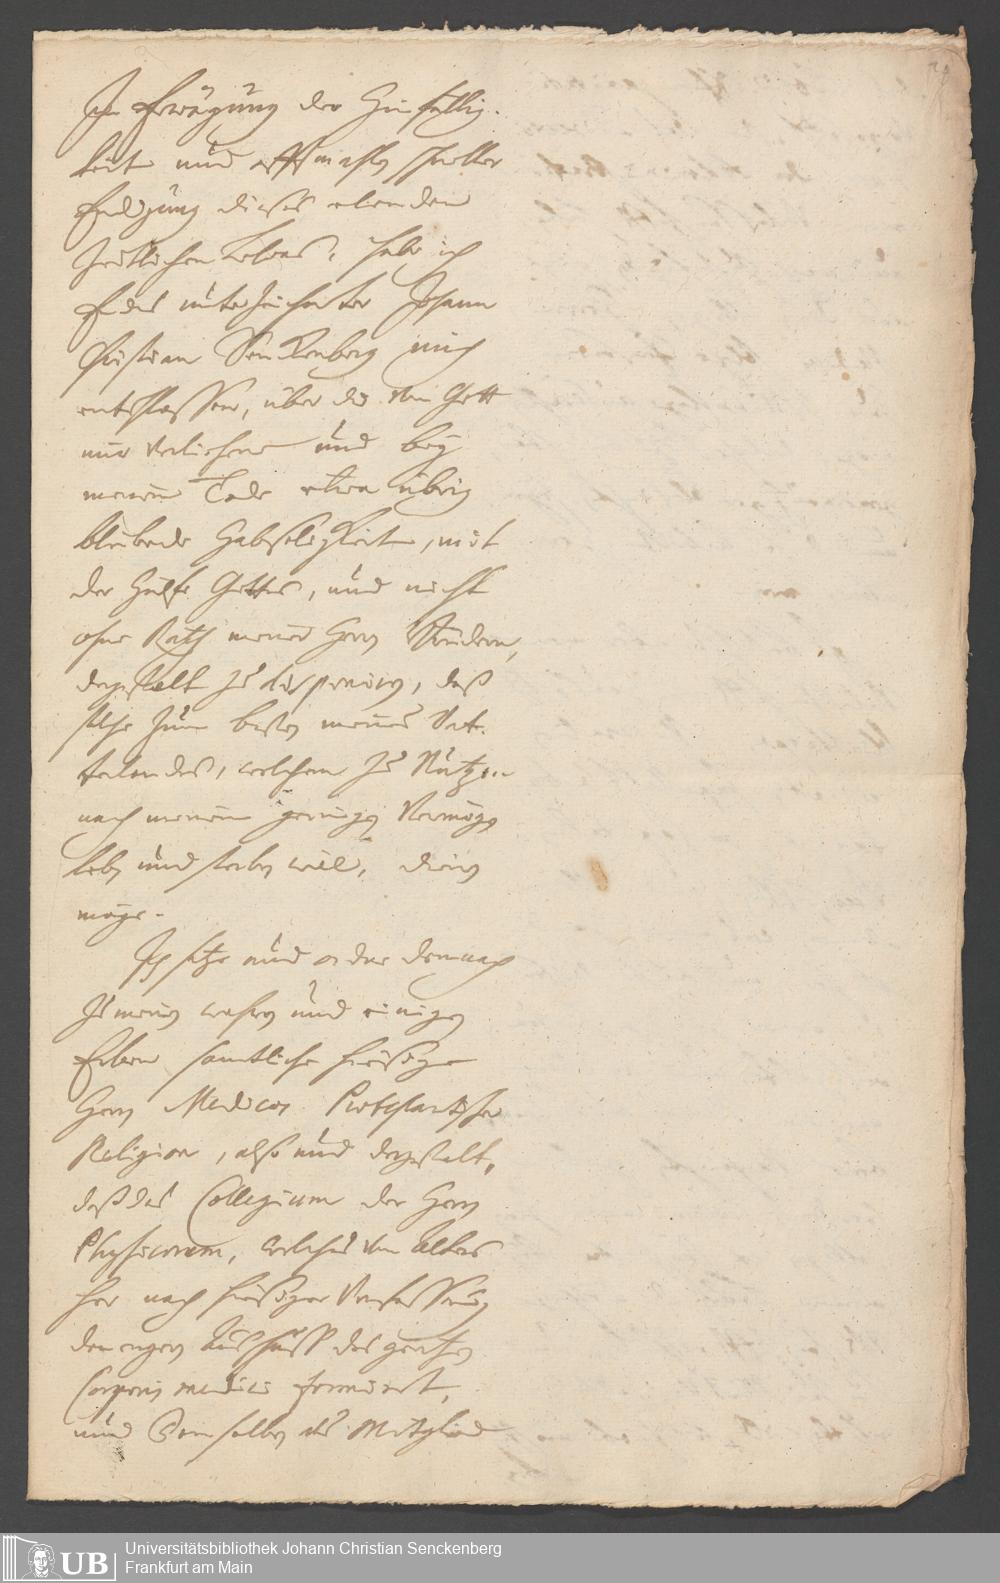 In Erwägung der Hinfällig-
keit und offtmahls schneller
Endigung dieses elenden
Zeitlichen Lebens, habe ich
Endes unterzeichneter Johann
Christian Senckenberg mich
entschlossen, über die von Gott
mir verliehene und bey
meinem Tode etwa übrig
bleibende Habseligkeiten, mit
der Hülfe Gottes, und nicht
ohne Rath meiner Herrn Brüdern,
dergestalt zu disponiren, daß
solche zum besten meines Vat-
terlandes, welchem zu Nutzen
nach meinem geringen Vermögen
leben und sterben will, dienen
möge.
Ich setze und ordne demnach
zu meinen wahren und einigen
Erben samtliche hiesige
Herrn Medicos Protestantischer
Religion, also und dergestalt,
daß das Collegium der Herrn
Physicorum, welches von Alters
her nach hiesiger Verfassung
den engern Ausschuss des gantzen
Corporis medici formiret,
und demselben als Mitglied
UB
Universitätsbibliothek Johann Christian Senckenberg
Frankfurt am Main